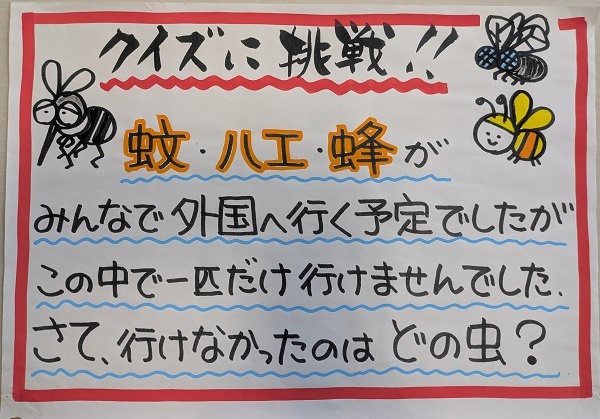 クイズに挑戦!!
蚊・ハエ・蜂が
みんなで外国へ行く予定でしたが
この中で一匹だけ行けませんでした.
さて、行けなかったのはどの虫?